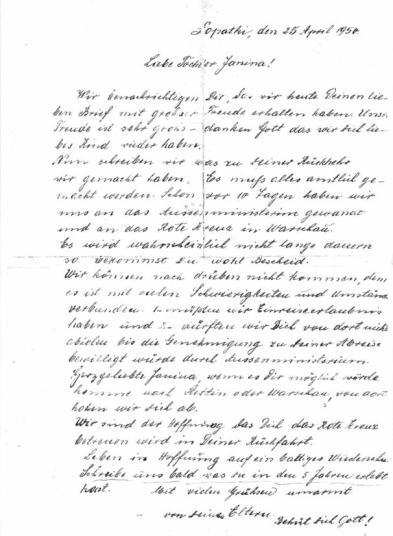 Sopathi, den 25 April 1950.
Liebe Tochter Janina!
Wir benachrichtigen Dir, das wir heute Deinen lie-
ben Brief mit groser Freude erhalten haben. Unsre
Freude ist sehr gross - danken Gott das wir Dich lie-
bes Kind wieder haben.
Nun schreiben wir was zu deiner Rückkehr
wir gemacht haben. Es muss alles amtlich ge-
macht werden. Schon vor 10 Tagen haben wir
uns an das Aussenministerium gewandt
und an das Rote Kreuz in Warschau.
Es wird wahrscheinlich nicht lange dauern
so bekommst Du wohl Bescheid.
Wir können nach drüben nicht kommen, denn
es ist mit vielen Schwierigkeiten und Umstände
verbunden. 1- müssten wir Einreiseerlaubnis
haben und 2- dürften wir Dich von dort nicht
abholen bis die Genehmigung zu deiner Abreise
bewilligt würde durch Aussenministerium.
Herzgeliebte Janina, wenn es Dir möglich würde
komme nach Stettin oder Warschau, von dort
hohlen wir Dich ab.
Wir sind der Hoffnung das Dich das Rote Kreuz
betreuen wird in Deiner Rückfahrt.
Leben in Hoffnung auf ein baldiges Wiedersehn.
Schreibe uns bald was du in den 5 Jahren erlebt
hast. Mit vielen Grüssen umarmt
von deinen Eltern.
Behüt Dich Gott!